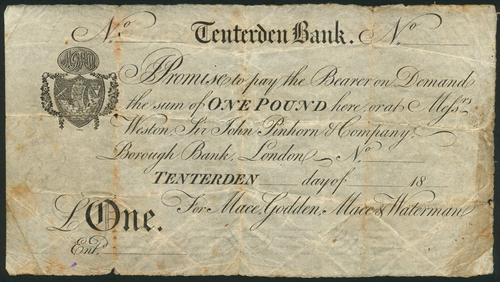 No Tenterden Bank. No
I Promise to pay the Bearer on Demand
the sum of ONE POUND here, or at Messrs
Weston, Sir John Pinhorn & Company,
Borough Bank, London No
TENTERDEN day of 18
For Mace, Godden, Mace & Waterman
£ One.
Entd.